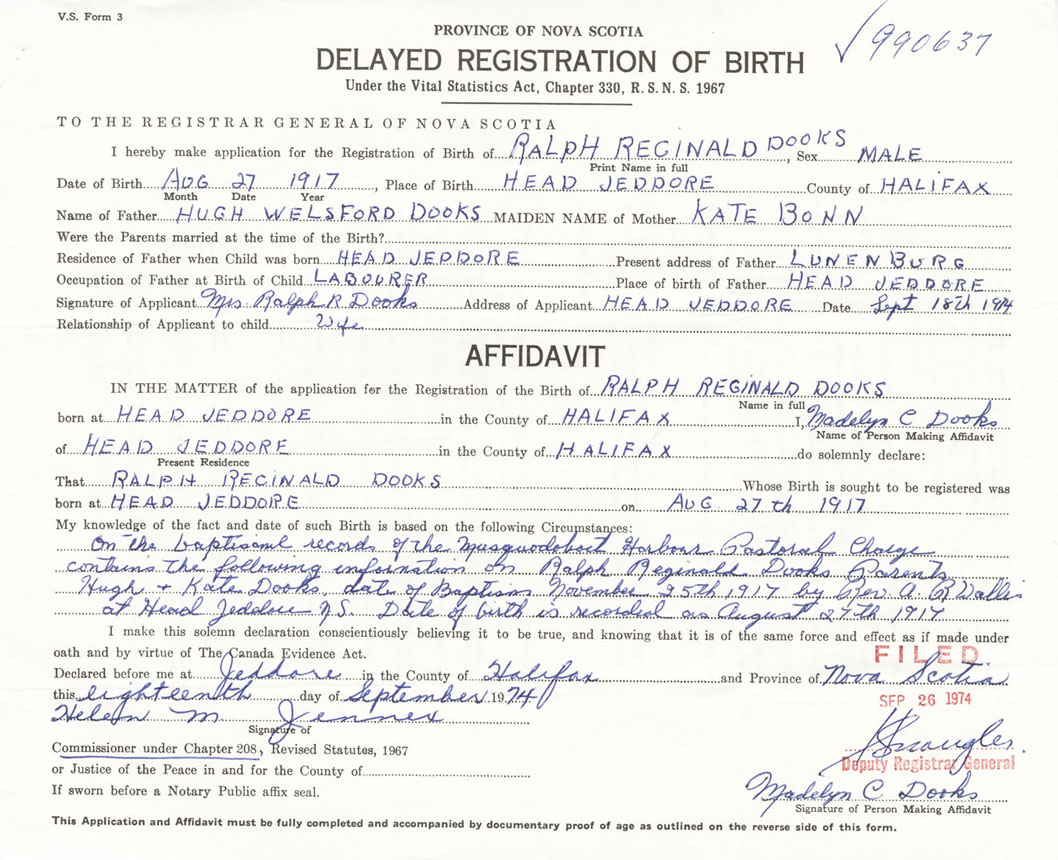 V.S. Form 3
PROVINCE OF NOVA SCOTIA
990637
DELAYED REGISTRATION OF BIRTH
Under the Vital Statistics Act, Chapter 330, R. S. N. S. 1967
TO THE REGISTRAR GENERAL OF NOVA SCOTIA
I hereby make application for the Registration of Birth of RALPH REGINALD DOOKS, Sex MALE
Print Name in full
Date of Birth AUG 27 1917, Place of Birth HEAD JEDDORE County of HALIFAX
Month Date Year
Name of Father HUGH WELSFORD DOOKS MAIDEN NAME of Mother KATE BONN
Were the Parents married at the time of the Birth?
Residence of Father when Child was born HEAD JEDDORE Present address of Father LUNENBURG
Occupation of Father at Birth of Child LABOURER Place of birth of Father HEAD JEDDORE
Signature of Applicant Mrs Ralph R. Dooks Address of Applicant HEAD JEDDORE Date Sept 18th 1974
Relationship of Applicant to child Wife
AFFIDAVIT
IN THE MATTER of the application for the Registration of the Birth of RALPH REGINALD DOOKS
Name in full
born at HEAD JEDDORE in the County of HALIFAX I, Madelyn C Dooks
Name of Person Making Affidavit
of HEAD JEDDORE in the County of HALIFAX do solemnly declare:
Present Residence
That RALPH REGINALD DOOKS Whose Birth is sought to be registered was
born at HEAD JEDDORE on AUG 27th 1917
My knowledge of the fact and date of such Birth is based on the following Circumstances:
On the baptismal records of the Musquodoboit Harbour Pastoral Charge
contains the following information on Ralph Reginald Dooks Parents
Hugh + Kate Dooks, date of Baptism November 25th 1917 by Rev. A. R Wallis
at Head Jeddore N.S. Date of birth is recorded as August 27th 1917
I make this solemn declaration conscientiously believing it to be true, and knowing that it is of the same force and effect as if made under
oath and by virtue of The Canada Evidence Act.
FILED
Declared before me at Jeddore in the County of Halifax and Province of Nova Scotia
this eighteenth day of September 1974
SEP 26 1974
Helen M Jennex
Signature of
Commissioner under Chapter 208, Revised Statutes, 1967
or Justice of the Peace in and for the County of
Deputy Registrar General
If sworn before a Notary Public affix seal.
Madelyn C. Dooks
Signature of Person Making Affidavit
This Application and Affidavit must be fully completed and accompanied by documentary proof of age as outlined on the reverse side of this form.